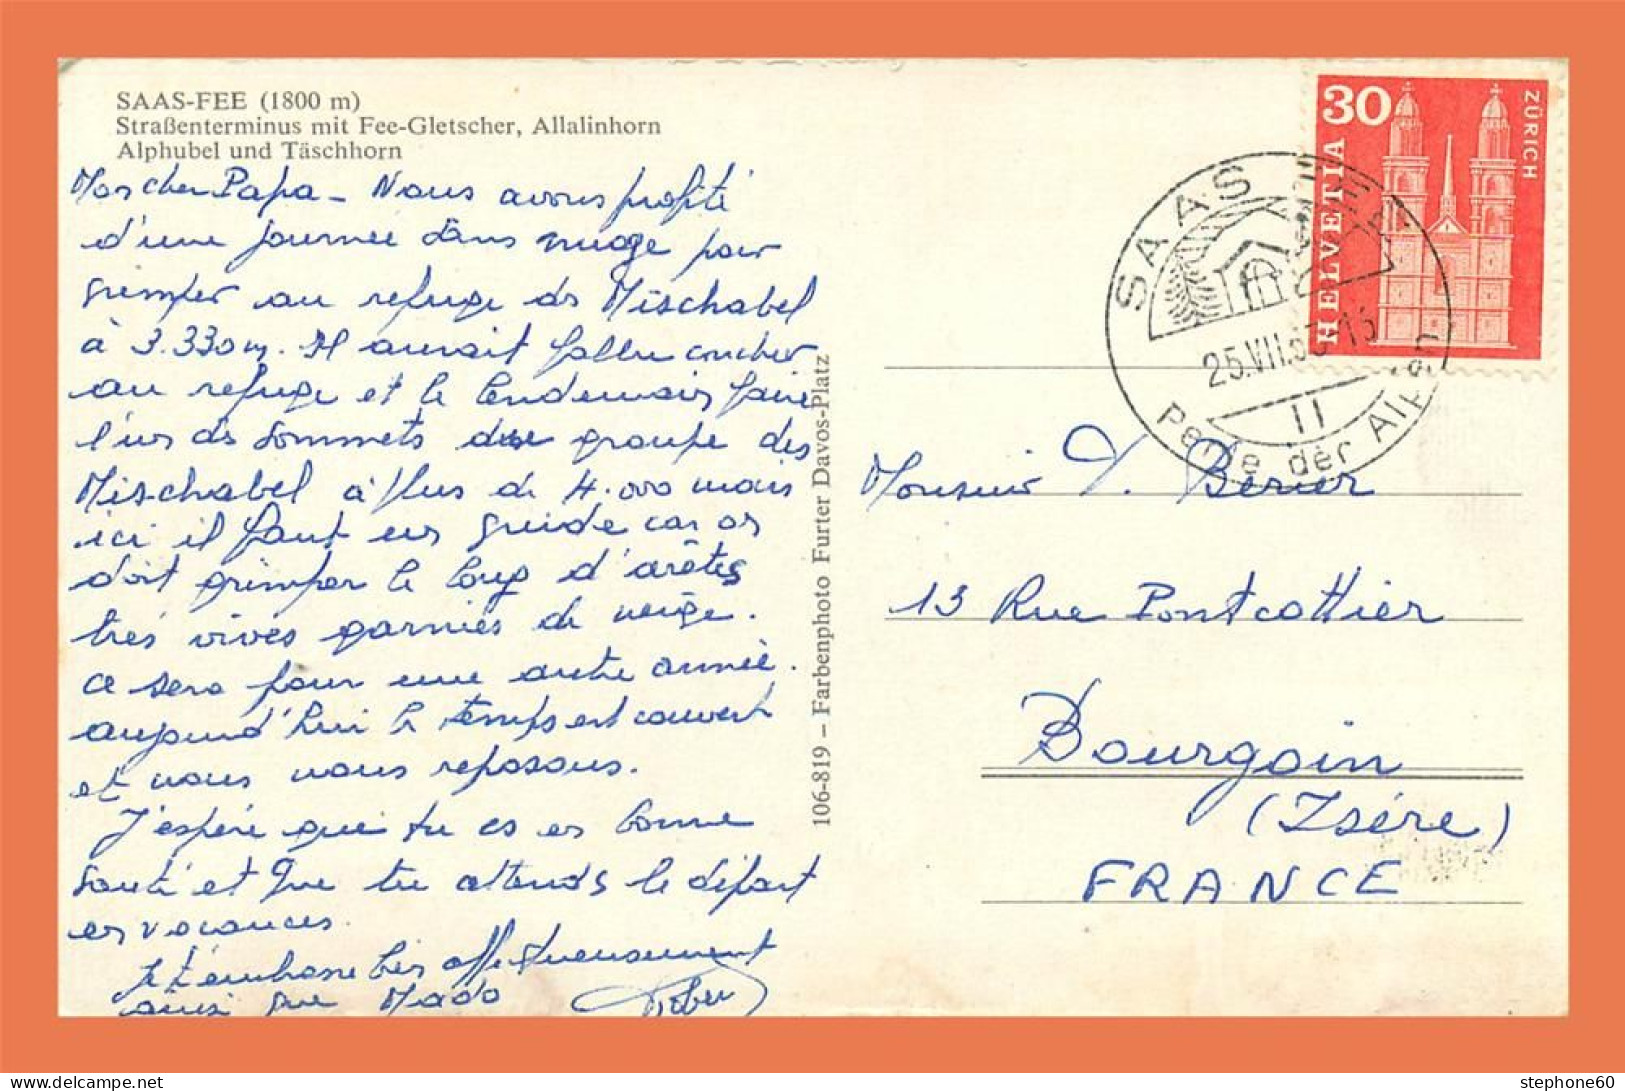 SAAS-FEE (1800 m)
Straßenterminus mit Fee-Gletscher, Allalinhorn
Alphubel und Täschhorn
Mon cher Papa - Nous avons profité
d'une journée sans nuage pour
grimper au refuge des Mischabel
à 3.330 m. Il aurait fallu coucher
au refuge et le lendemain faire
l'un des sommets du groupe des
Mischabel à plus de 4.000 mais
ici il faut un guide car on
doit grimper le long d'arêtes
très vives garnies de neige.
ce sera pour une autre année.
aujourd'hui le temps est couvert
et nous nous reposons.
J'espère que tu es en bonne
santé et que tu attends le départ
en vacances.
Je t'embrasse bien affectueusement
ainsi que Mado
106-819 – Farbenphoto Furter Davos-Platz
30
HELVETIA
ZÜRICH
SAAS-FEE
25.VII.
11
Perle der Alpen
Monsieur Berier
13 Rue Pontcottier
Bourgoin
(Isére)
FRANCE
stephone60